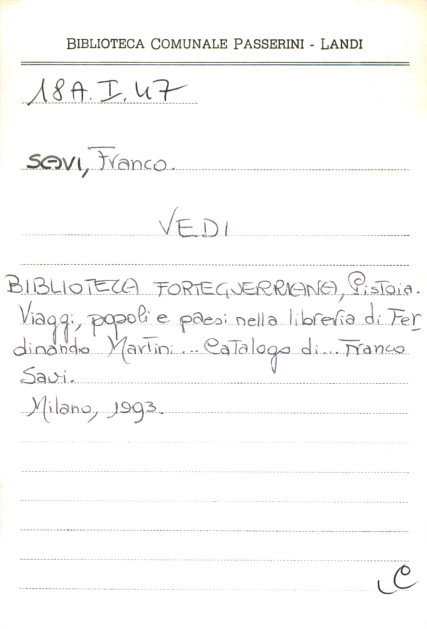 BIBLIOTECA COMUNALE PASSERINI - LANDI
18A.I.47
SAVI, Franco.
VEDI
BIBLIOTECA FORTEGUERRIANA, Pistoia.
Viaggi, popoli e paesi nella libreria di Fer
dinando Martini... Catalogo di... Franco
Savi.
Milano, 1993.